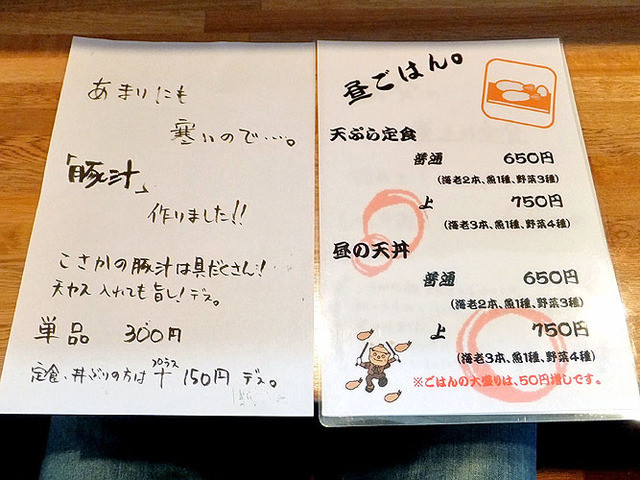 あまりにも
寒いので…。
「豚汁」
作りました!!
こさかの豚汁は具だくさん!
天カス入れても旨し!デス。
単品 300円
定食、丼ぶりの方は プラス + 150円 デス。
昼ごはん。
天ぷら定食
普通 650円
(海老2本、魚1種、野菜3種)
上 750円
(海老3本、魚1種、野菜4種)
昼の天丼
普通 650円
(海老2本、魚1種、野菜3種)
上 750円
(海老3本、魚1種、野菜4種)
※ごはんの大盛りは、50円増しです。